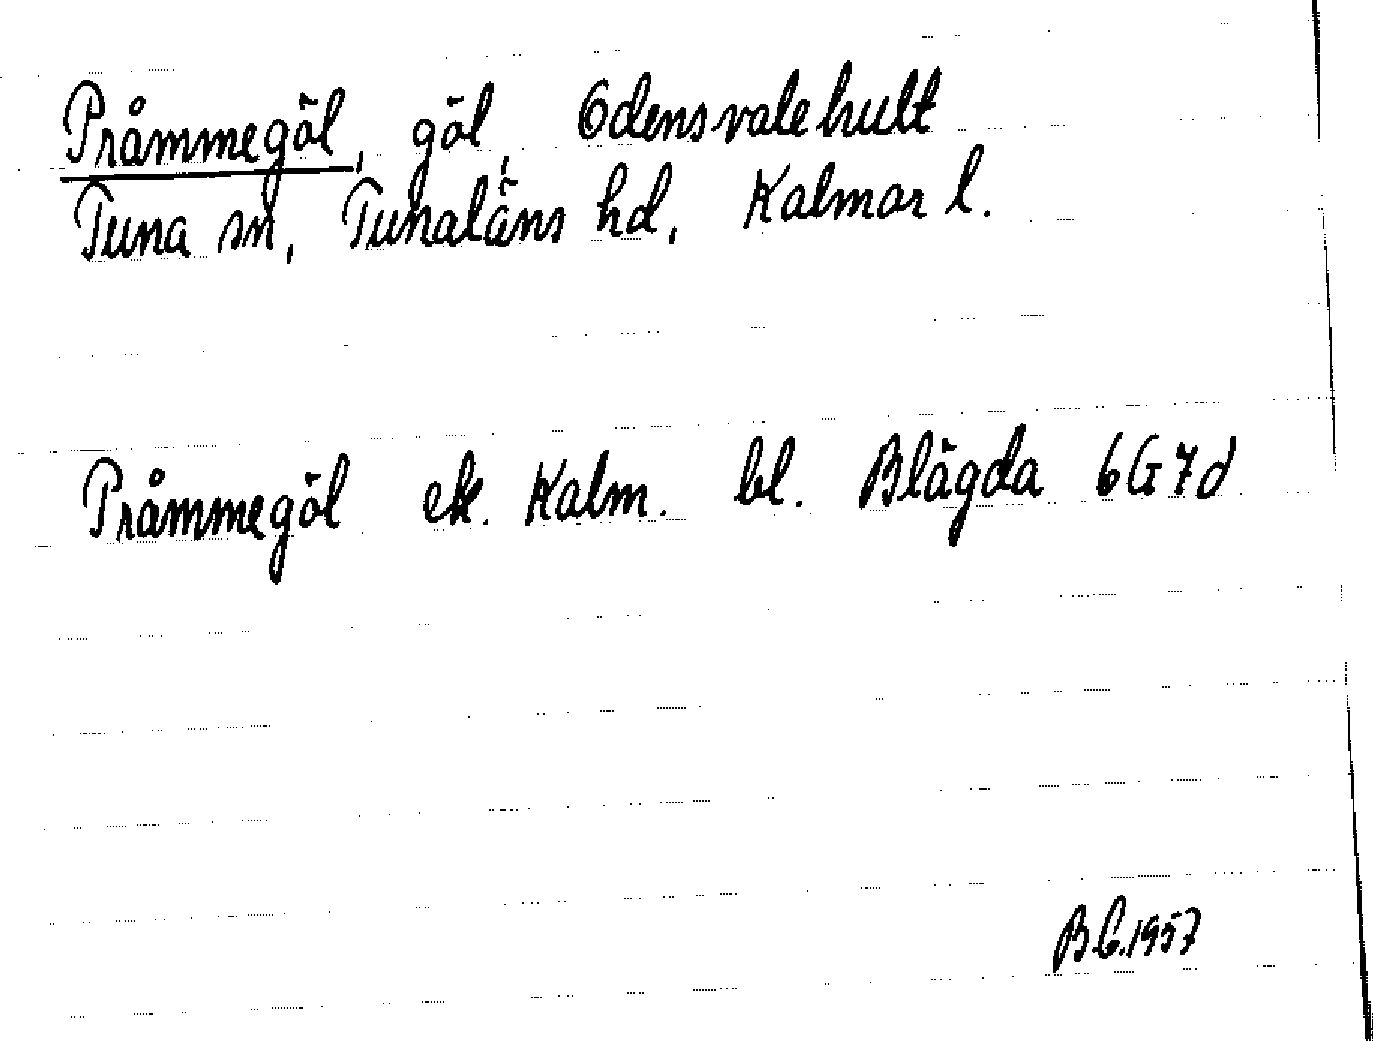 Pråmmegöl, göl, Odensvalehult
Tuna sn, Tunaläns hd, Kalmar l.
Pråmmegöl ek. Kalm. bl. Blägda 6G7d
B G. 1957